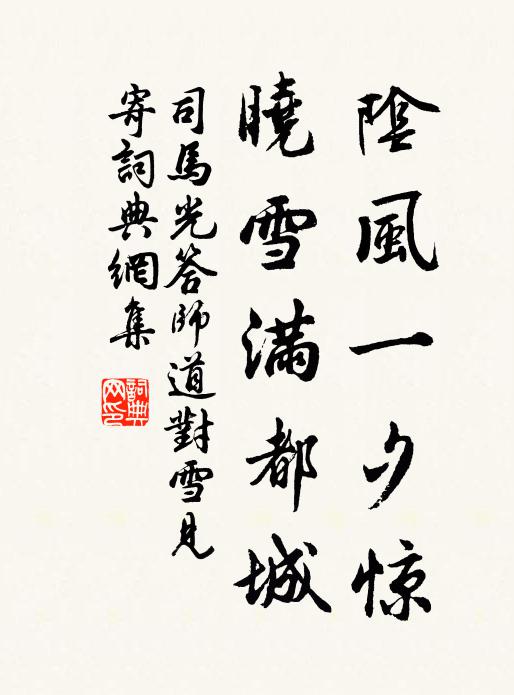 陰風一夕惊
曉雪滿都城
司馬光答師道對雪見
寄詞典網集
詞典網印